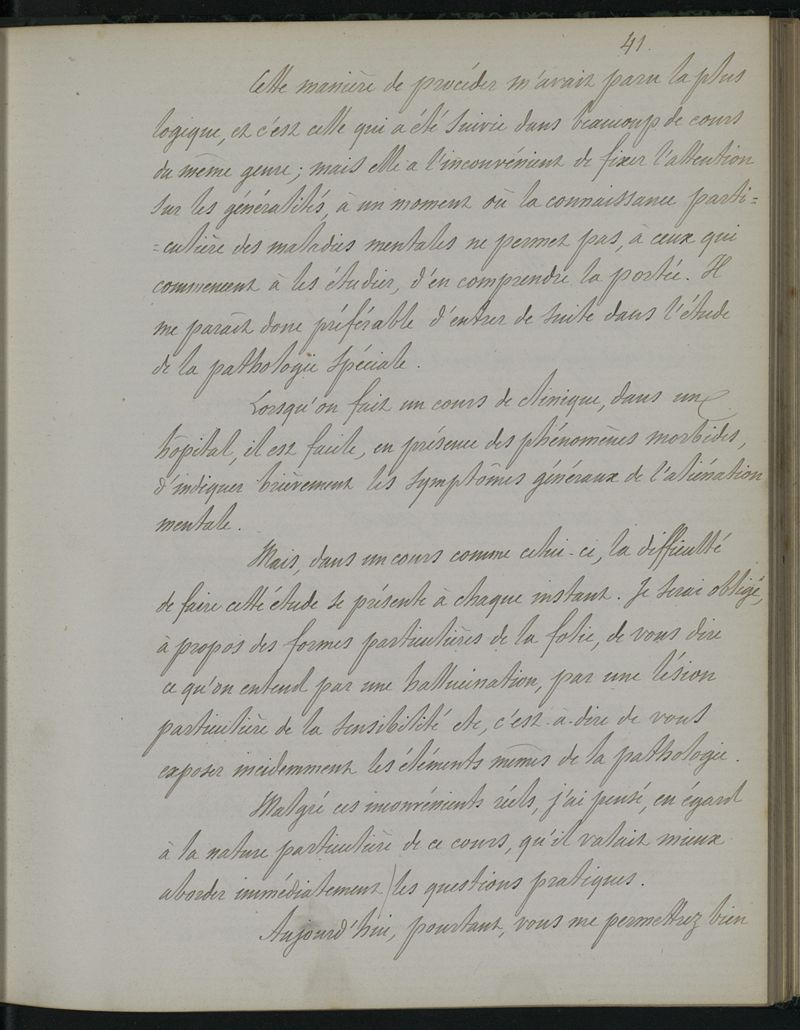 41.
Cette manière de procéder m'avait paru la plus
logique, et c'est celle qui a été suivie dans beaucoup de cours
du même genre; mais elle a l'inconvénient de fixer l'attention
sur les généralités, à un moment où la connaissance parti=
=culière des maladies mentales ne permet pas, à ceux qui
commencent à les étudier, d'en comprendre la portée. Il
me paraît donc préférable d'entrer de suite dans l'étude
de la pathologie spéciale.
Lorsqu'on fait un cours de clinique, dans un
hôpital, il est facile, en présence des phénomènes morbides,
d'indiquer brièvement les symptômes généraux de l'aliénation
mentale.
Mais, dans un cours comme celui-ci, la difficulté
de faire cette étude se présente à chaque instant. Je serai obligé,
à propos des formes particulières de la folie, de vous dire
ce qu'on entend par une hallucination, par une lésion
particulière de la sensibilité etc, c'est-à-dire de vous
exposer incidemment les éléments mêmes de la pathologie.
Malgré ces inconvénients réels, j'ai pensé, en égard
à la nature particulière de ce cours, qu'il valait mieux
aborder immédiatement les questions pratiques.
Aujourd'hui, pourtant, vous me permettrez bien